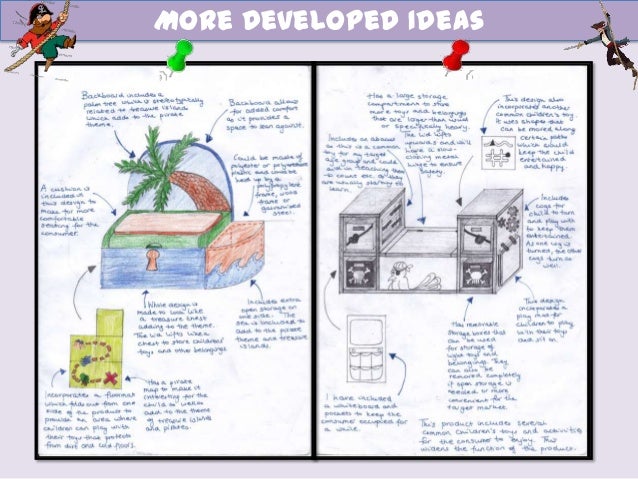 MORE DEVELOPED IDEAS
Backboard includes a
palm tree which is stereotypically
related to treasure island
which adds to the pirate
theme.
Backboard allows
for added comfort
as it provides a
space to lean against.
Could be made of
polyester or polyurethane
fabric and could be
held up by a
polypropylene
frame, wood
frame or
galvanised
steel.
A cushion is
included in
this design to
make for more
comfortable
seating for the
consumer.
While design is
made to look like
a treasure chest
adding to the theme.
The lid lifts like a
chest to store childrens'
toys and other belongings
Includes extra
open storage on
one side. The
sea is included to
add to the pirate
theme and treasure
islands.
Incorporates a floormat
which folds out from one
side of the product to
provide an area where
children can play with
their toys that protects
from dirt and cold floors.
Has a pirate
map to make it
interesting for the
child as well as
add to the theme
of treasure islands
and pirates.
Has a large storage
compartment to store
more toys and belongings
that are larger than usual
or specifically heavy.
The lid lifts
upwards and will
have a slow-
closing metal
hinge to ensure
safety.
Includes an abacus
as this is a common
toy for my target
age group and could
aid in teaching them
to count etc. as they
are usually starting to
learn.
This design also
incorporates another
common children's toy.
It uses shapes that
can be moved along
certain paths
which would
keep the child
entertained
and happy.
Includes
cogs for
child to turn
and play with
to keep them
entertained.
As one cog is
turned, the other
cogs turn as
well.
This design
incorporates a
play mat for
children to play
with their toys
and sit on.
Has removable
storage boxes that
can be used
for storage of
light toys and
belongings. They
can also be
removed completely
if open storage is
needed or more
convenient for the
target market.
I have included
a whiteboard and
pockets to keep the
consumer occupied for
a while.
This product includes several
common children's toys and activities
for the consumer to enjoy. This
widens the function of the product.